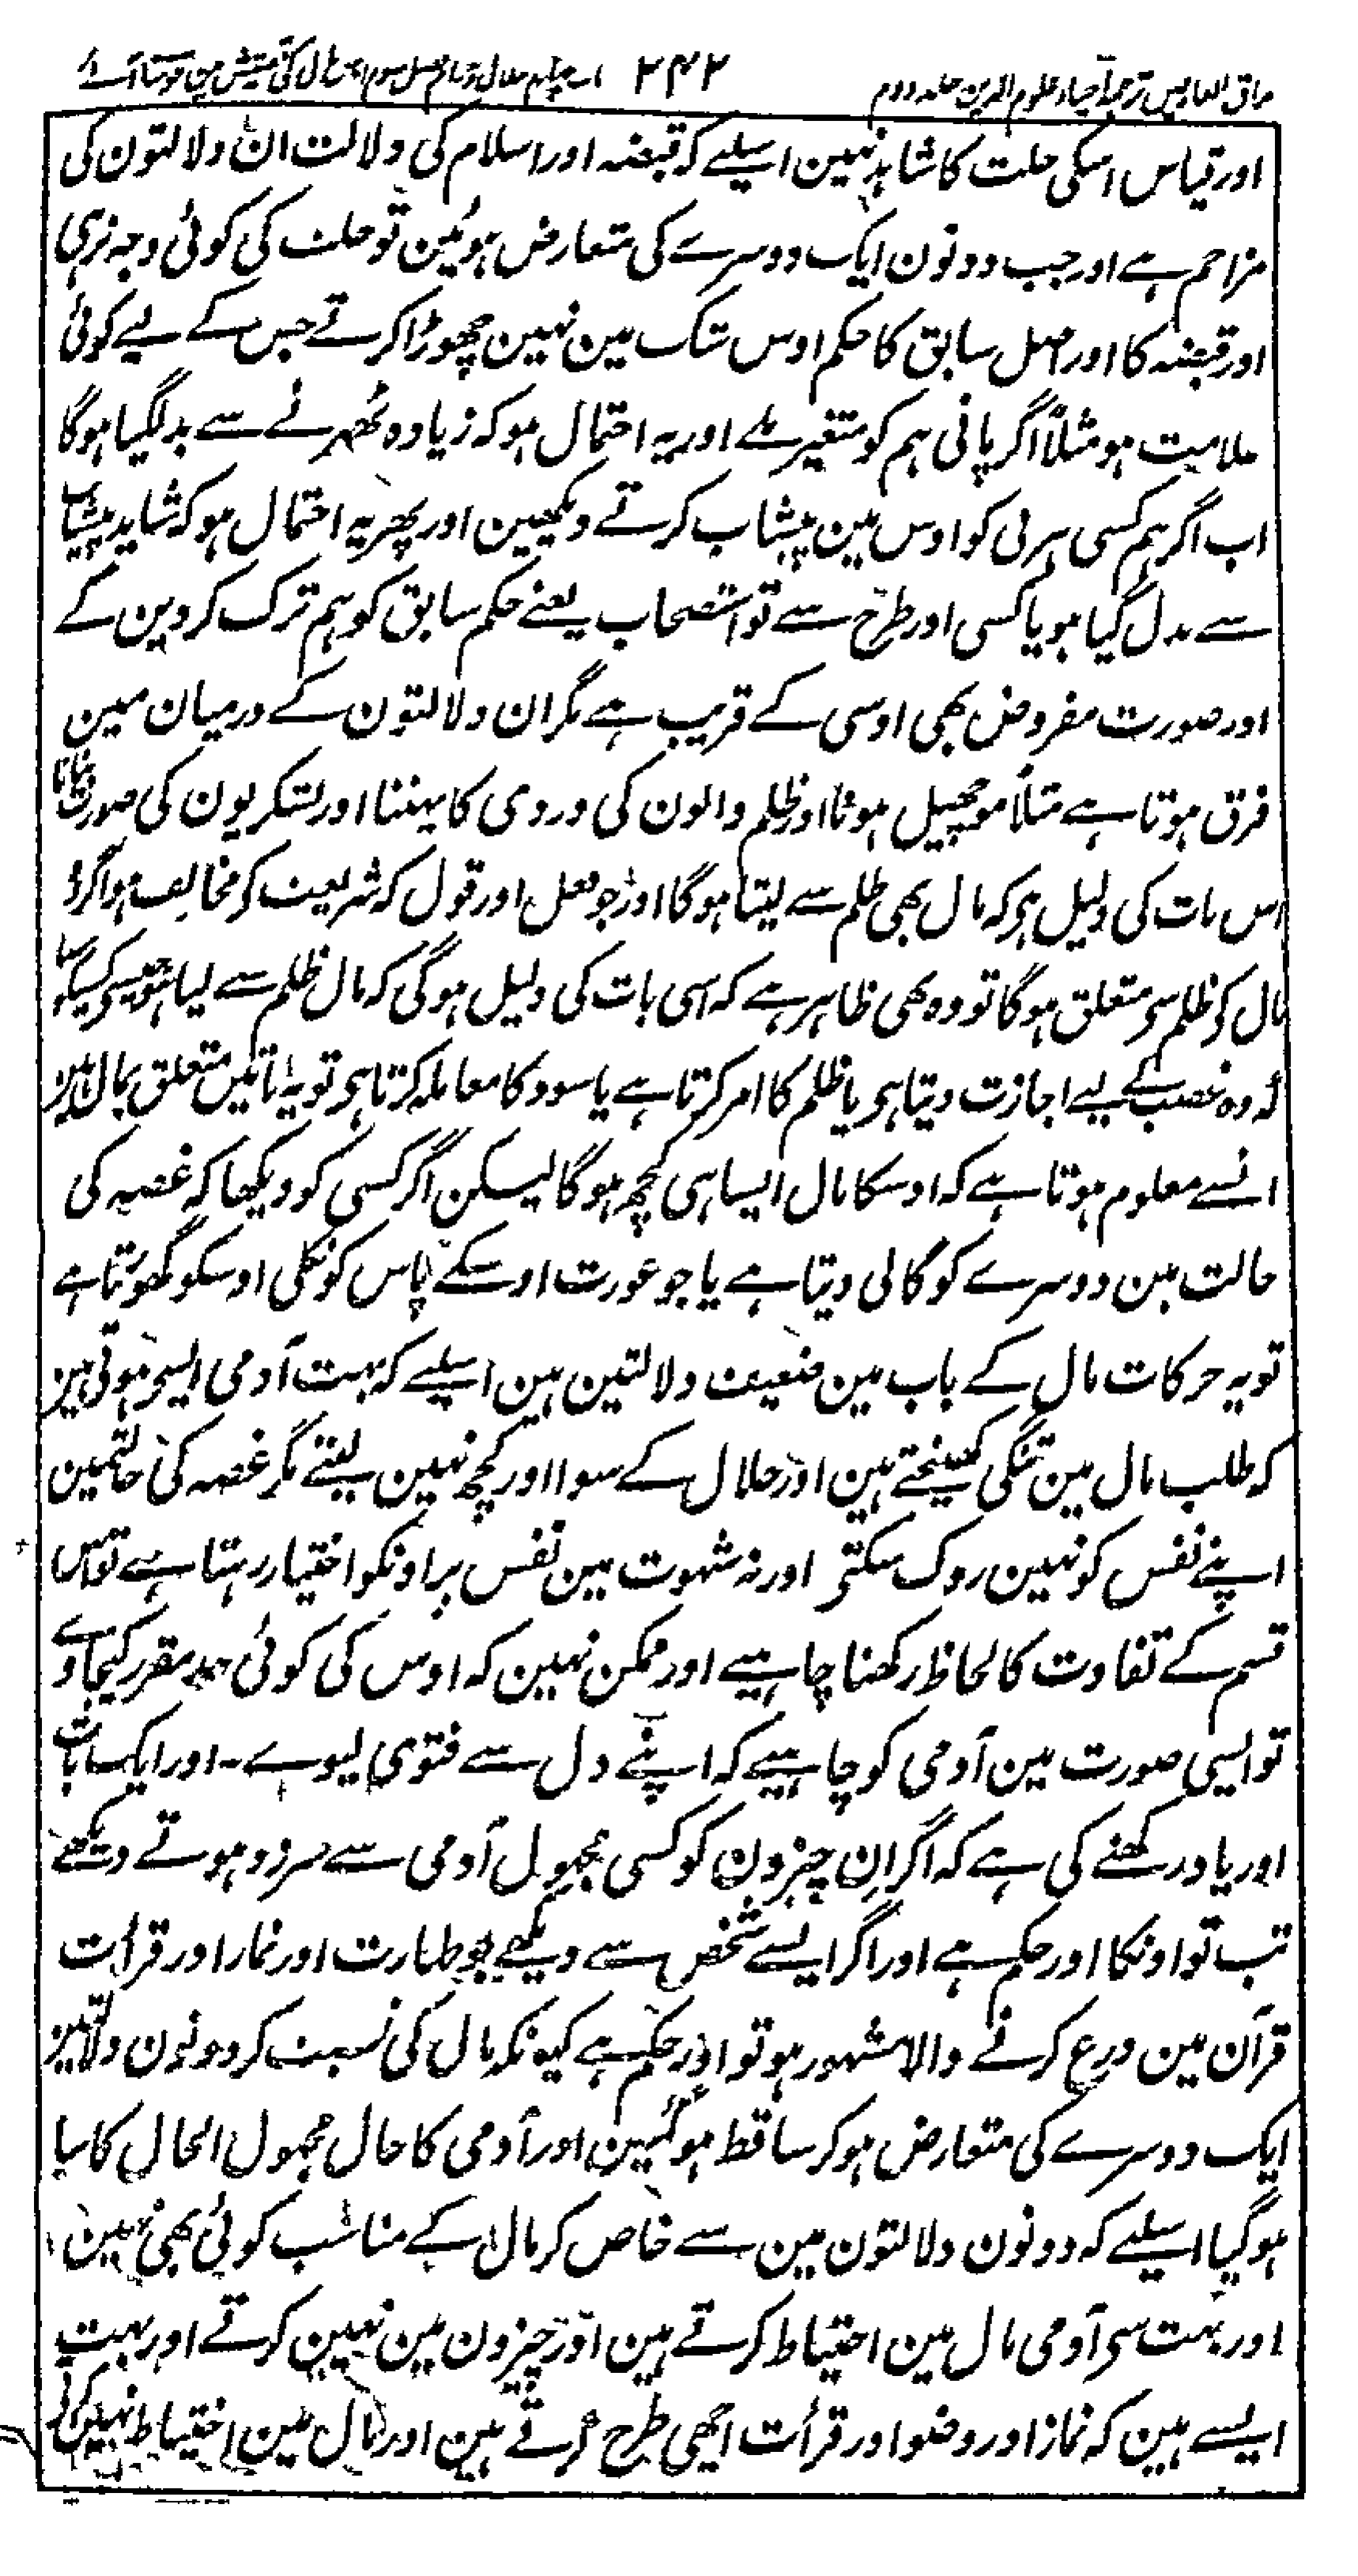 مذاق العارفین ترجمہ احیاء علوم الدین جلد دوم ۲۴۲
اور قیاس اسکی حلت کا شاہد نہین اسلیے کہ قبضہ اور اسلام کی دلالت ان دلالتون کی
مزاحم ہے اور جب دونون ایک دوسرے کی متعارض ہوئین تو حلت کی کوئی وجہ نرہی
اور قبضہ کا اور اصل سابق کا حکم اوس شک مین نہین چھوڑا کرتے جس کے لیے کوئی
علامت ہو مثلاً اگر پانی ہم کو متغیر ملے اور یہ احتمال ہو کہ زیادہ ٹھہرنے سے بدلگیا ہوگا
اب اگر ہم کسی ہرنی کو اوس مین پیشاب کرتے دیکھین اور پھر یہ احتمال ہو کہ شاید پیشاب
سے بدل گیا ہو یا کسی اور طرح سے تو استصحاب یعنے حکم سابق کو ہم ترک کر دین گے
اور صورت مفروض بھی اوسی کے قریب ہے مگر ان دلالتون کے درمیان مین
فرق ہوتا ہے مثلاً مونچھیل ہونا اور ظلم والون کی وردی کا پہننا اور لشکریون کی صورت بنانا
اس بات کی دلیل ہی کہ مال بھی ظلم سے لیتا ہوگا اور جو فعل اور قول کہ شریعت کو مخالف ہو اگر وہ
مال کو ظلم سی متعلق ہوگا تو وہ بھی ظاہر ہے کہ اسی بات کی دلیل ہوگی کہ مال ظلم سے لیا ہو جیسی کسیکو سنا
کہ وہ غصب کے لیے اجازت دیتا ہی یا ظلم کا امر کرتا ہے یا سود کا معاملہ کرتا ہی تو یہ باتین متعلق بمال ہین
انسے معلوم ہوتا ہے کہ اوسکا مال ایسا ہی کچھ ہوگا لیکن اگر کسی کو دیکھا کہ غصہ کی
حالت مین دوسرے کو گالی دیتا ہے یا جو عورت اوسکے پاس کو نکلی اوسکو گھورتا ہے
تو یہ حرکات مال کے باب مین ضعیف دلالتین ہین اسلیے کہ بہت آدمی ایسی ہوتی ہین
کہ طلب مال مین تنگی کھینچتے ہین اور حلال کے سوا اور کچھ نہین لیتے مگر غصہ کی حالتمین
اپنے نفس کو نہین روک سکتی اور نہ شہوت مین نفس پر اونکو اختیار رہتا ہے تو اس
قسم کے تفاوت کا لحاظ رکھنا چاہیے اور ممکن نہین کہ اوس کی کوئی حد مقرر کیجاوے
تو ایسی صورت مین آدمی کو چاہیے کہ اپنے دل سے فتوی لیوے۔ اور ایک بات
اور یاد رکھنے کی ہے کہ اگر ان چیزون کو کسی مجہول آدمی سے سرزد ہوتے دیکھے
تب تو اونکا اور حکم ہے اور اگر ایسے شخص سے دیکھے جو طہارت اور نماز اور قرأت
قرآن مین ورع کرنے والا مشہور ہو تو اور حکم ہے کیونکہ مال کی نسبت کر دونون دلالتین
ایک دوسرے کی متعارض ہو کر ساقط ہو گئین اور آدمی کا حال مجہول الحال کا سا
ہو گیا اسلیے کہ دونون دلالتون مین سے خاص کر مال کے مناسب کوئی بھی نہین
اور بہت سی آدمی مال مین احتیاط کرتے ہین اور چیزون مین نہین کرتے اور بہت
ایسے ہین کہ نماز اور وضو اور قرأت اچھی طرح کرتے ہین اور مال مین احتیاط نہین کرتے